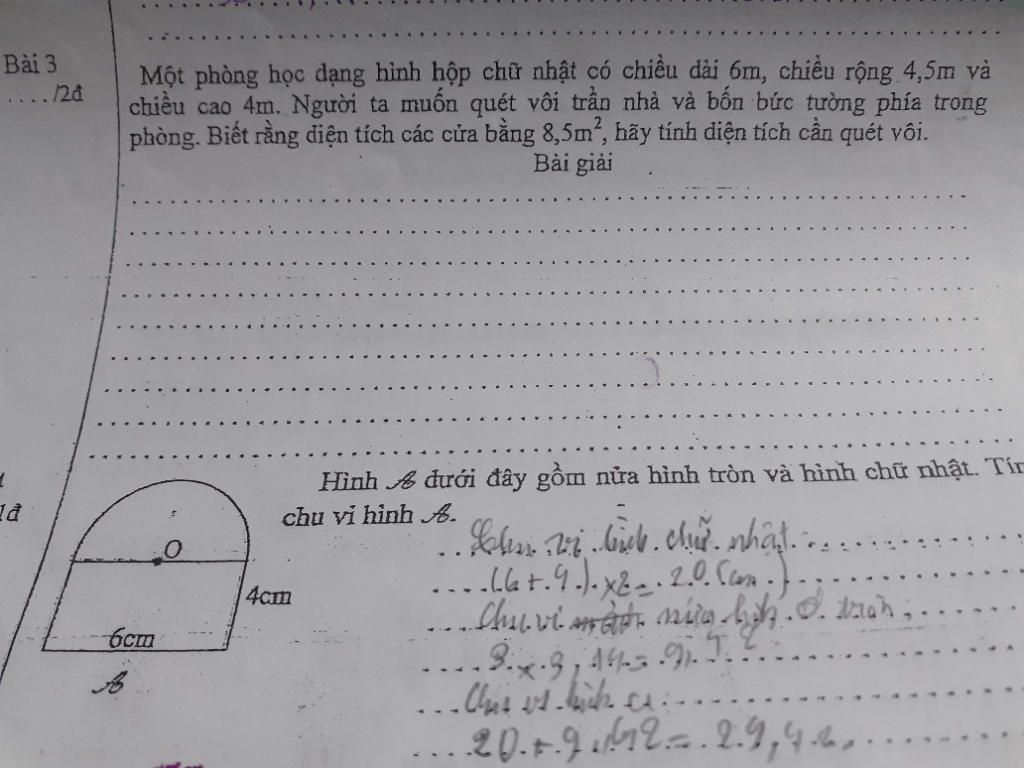 Bài 3
..../2đ
Một phòng học dạng hình hộp chữ nhật có chiều dài 6m, chiều rộng 4,5m và
chiều cao 4m. Người ta muốn quét vôi trần nhà và bốn bức tường phía trong
phòng. Biết rằng diện tích các cửa bằng 8,5m², hãy tính diện tích cần quét vôi.
Bài giải
1đ
Hình A dưới đây gồm nửa hình tròn và hình chữ nhật. Tín
chu vi hình A.
O
4cm
6cm
A
Chu vi hình chữ nhật
(6 + 4) x 2 = 20 (cm)
Chu vi nửa hình tròn
3 x 3,14 = 9,42
Chu vi hình
20 + 9,42 = 29,42